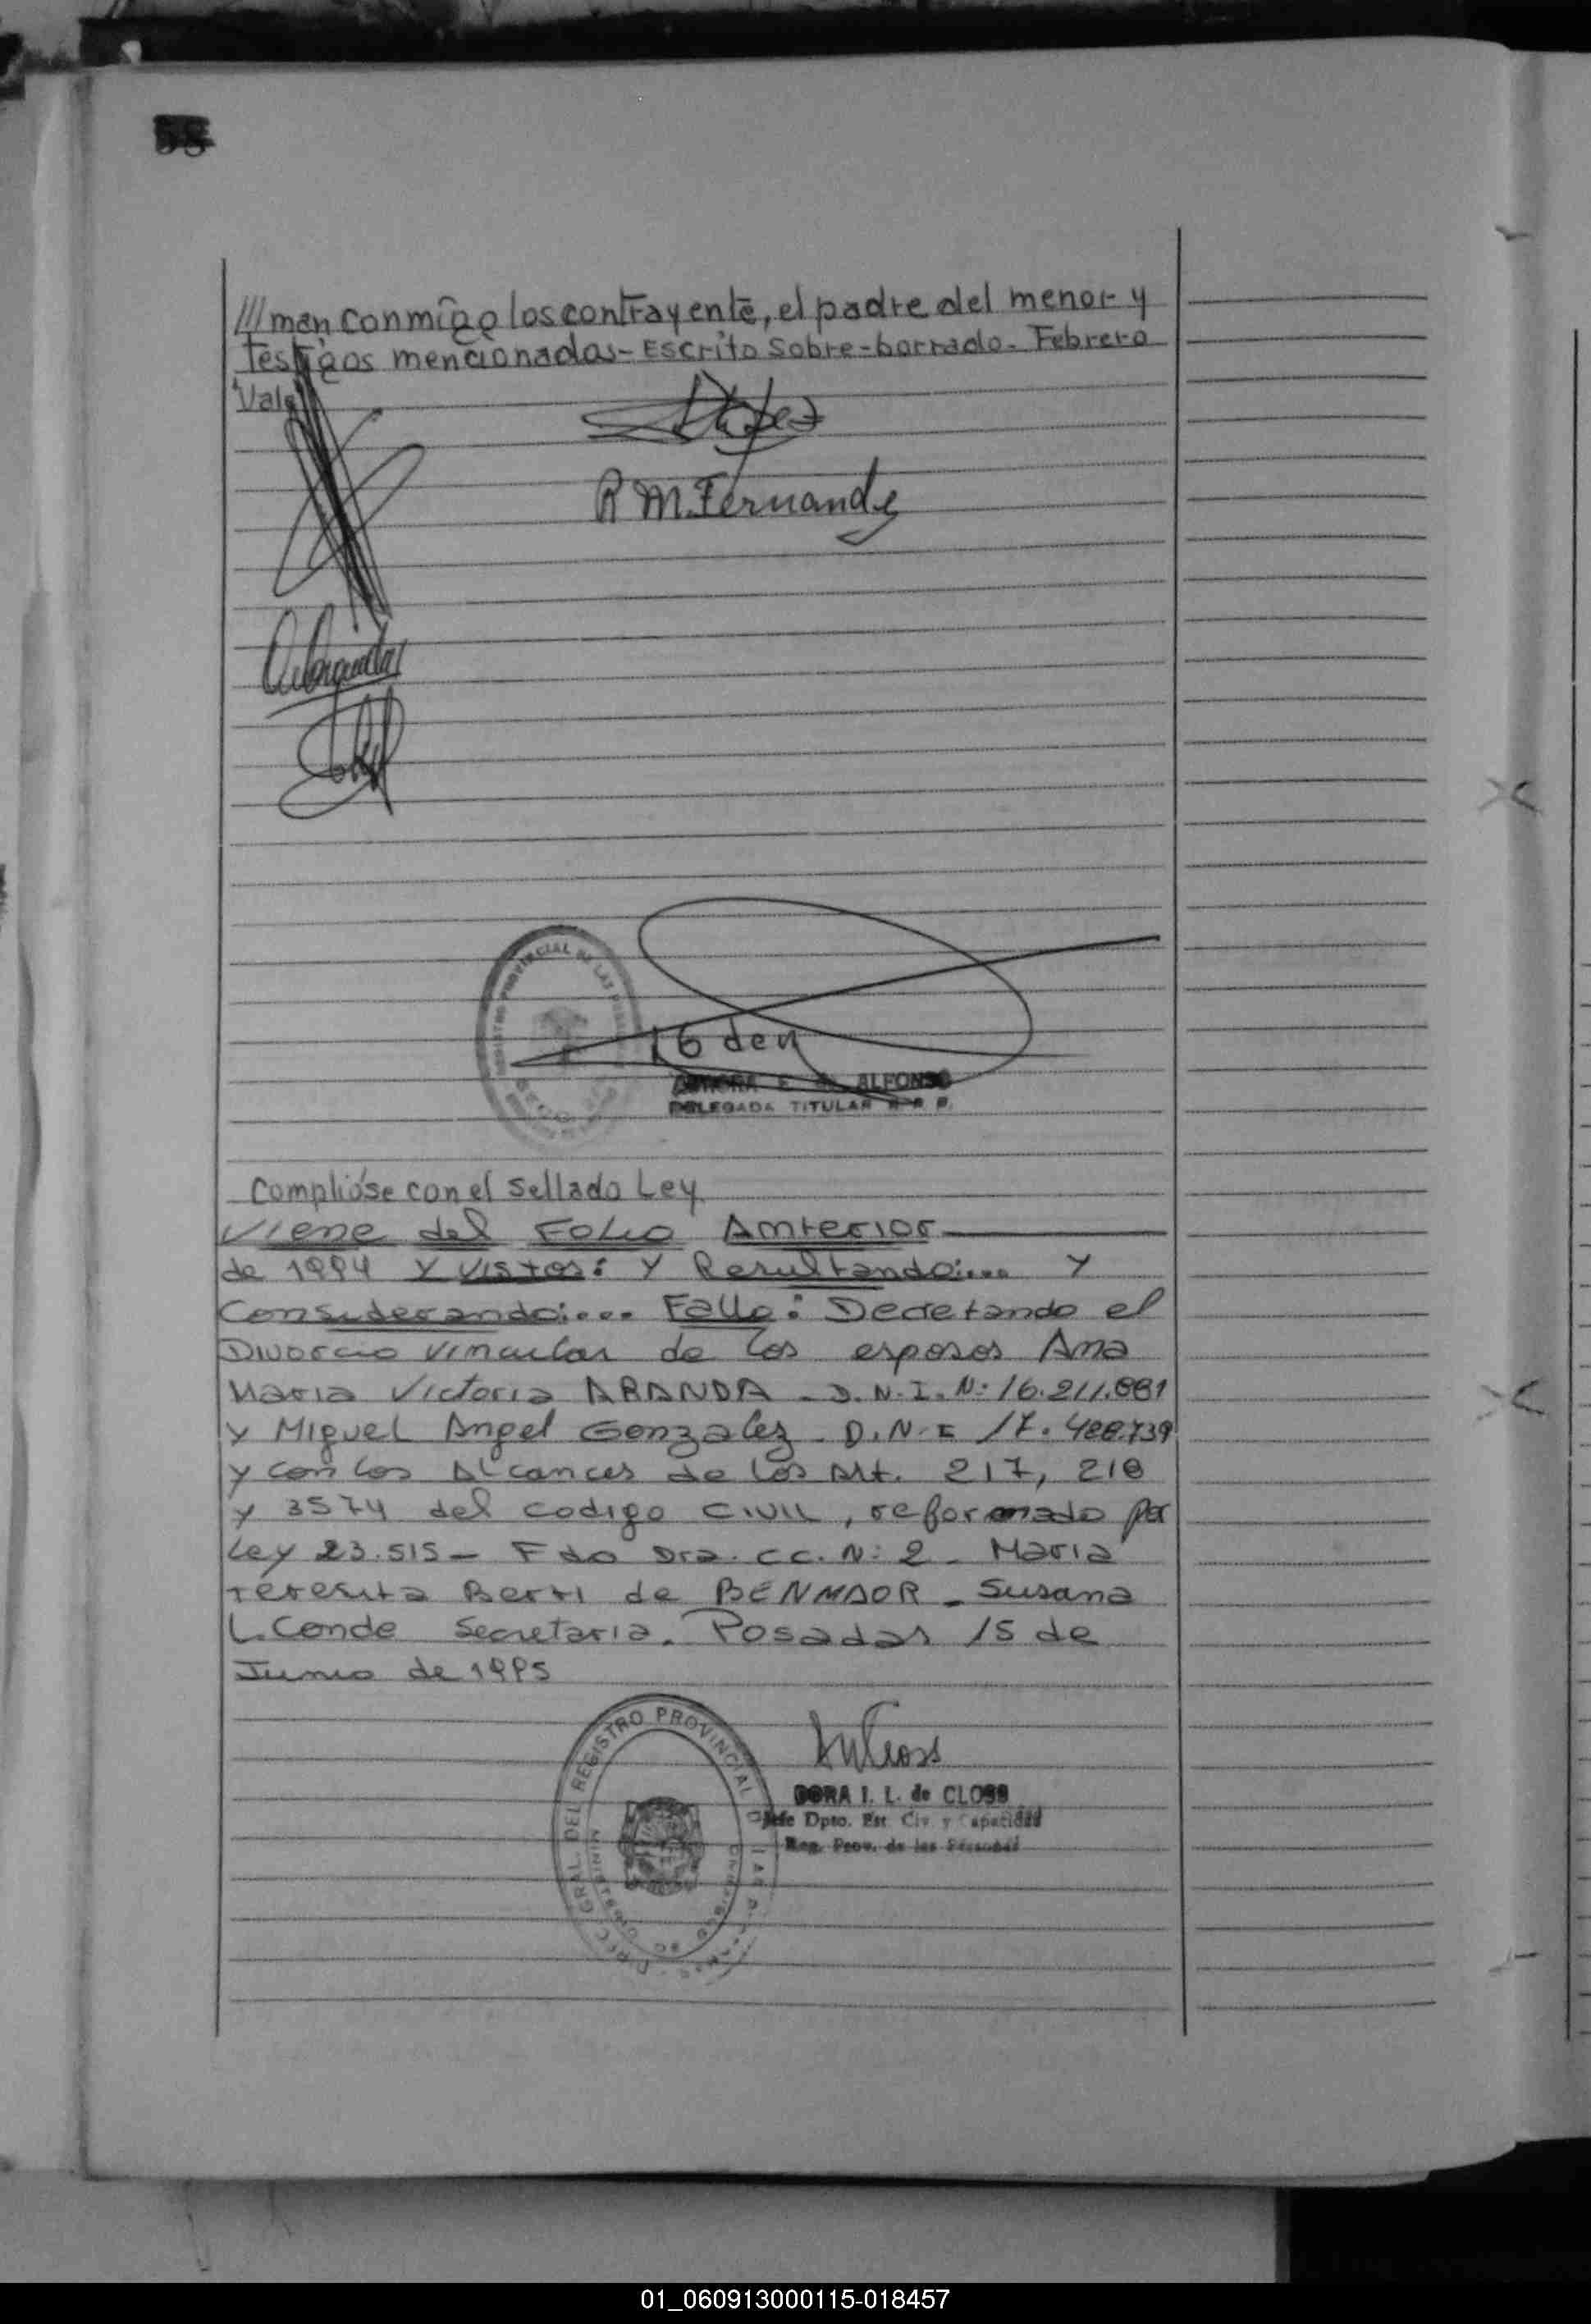 58
///man conmigo los contrayente, el padre del menor y
Testigos mencionados- Escrito Sobre-borrado- Febrero
Vale
R M. Fernandez
REGISTRO PROVINCIAL DE LAS
E. ALFONSO
DELEGADA TITULAR R. P. P.
Complióse con el Sellado Ley
Viene del Folio Anterior
de 1994 Y Vistos: Y Resultando:... Y
Considerando:... Fallo: Decretando el
Divorcio Vincular de los esposos Ana
Maria Victoria ARANDA - D.N.I. N: 16.211.881
y Miguel Angel Gonzalez - D.N.I 17.488.739
y con los Alcances de los Art. 217, 218
y 3574 del codigo civil, reformado por
Ley 23.515- Fdo Dra. CC. N: 2 - Maria
Teresita Berti de BENMAOR - Susana
L. Conde Secretaria. Posadas 15 de
Junio de 1995
GRAL. DEL REGISTRO PROVINCIAL
DORA I. L. de CLOSS
Jefe Dpto. Est. Civ. y Capacidad
Reg. Prov. de las Personas
01_060913000115-018457